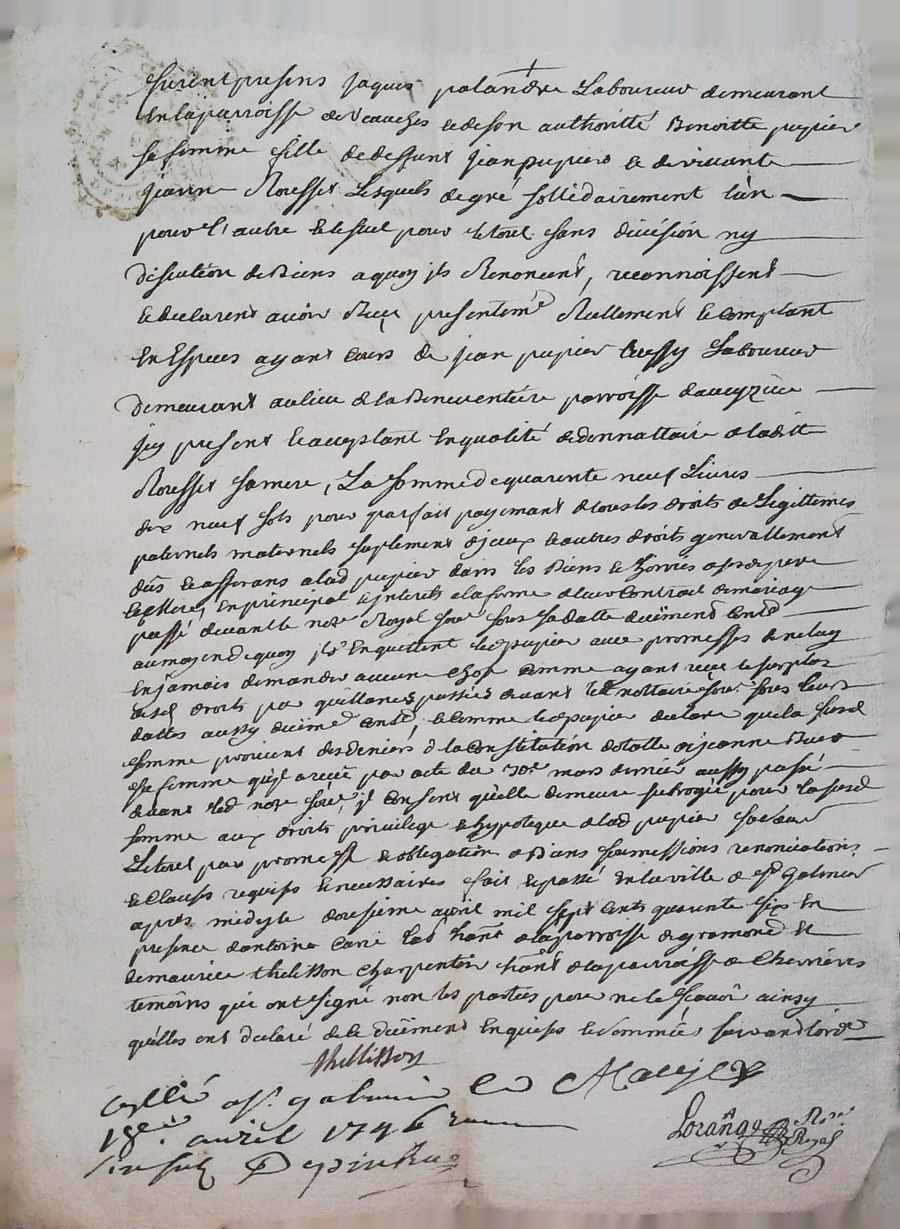 furent presens Jaques palandre Laboureur demeurant
En la parroisse de Veauches et de son authoritté Benoitte pupier
sa femme fille de deffunt jean pupier et de vivante
jeanne Rousset Lesquels de gré sollidairement l'un
pour l'autre et le seul pour le tout sans division ny
discution de Biens a quoy ils Renoncent, reconnoissent
et declarent avoir Reçu presentemt Reellement et comptant
En Especes ayant cours de jean pupier aussy Laboureur
Demeurant au lieu de la Beneventiere parroisse d'aveyzieu
jcy present et acceptant En qualité de donnattaire de laditte
Rousset sa mere, La somme de quarente neuf Livres
dix neuf sols pour parfait payemant de tous les droits de Legittimes
paternels maternels suplement d'jceux et autres droits generallement
dûs et afferans a lad pupier dans les Biens et hoiries de ses pere
et Mere, En principal et interets a la forme de leur Contrat de mariage
passé devant le nore Royal soué sous sa datte düement Conllé
au moyen de quoy ils En quittent led pupier avec promesses de ne luy
En jamais demander aucune chose comme ayant reçu le surplus
desd droits par quittances passées devant led nottaire soué sous leurs
dattes aussy düemt Conllé, et comme led pupier declare que la susd
somme provient des deniers de la Constitution dotalle de jeanne
sa femme qu'il a reçüe par acte du mars dernier aussy passé
devant led nore soué, jl consent qu'elle demeure subrogée pour la susd
somme aux droits privilege et hypoteque de lad pupier
par promesse et obligation de Biens soumissions renonciations
et clauses requises et necessaires fait et passé En la ville de St Galmier
apres midy le douzieme avril mil sept cents quarente six En
presence d'antoine lab habt de la parroisse de gramond et
de maurice thelisson charpentier habt de la parroisse de Chevrieres
temoins qui ont signé non les parties pour ne le sçavoir ainsy
qu'elles ont declaré de ce düement Enquises et sommées suivant lord
thellisson
Cellé a St galmier le
18e avril 1746
Lorange Nore Royal